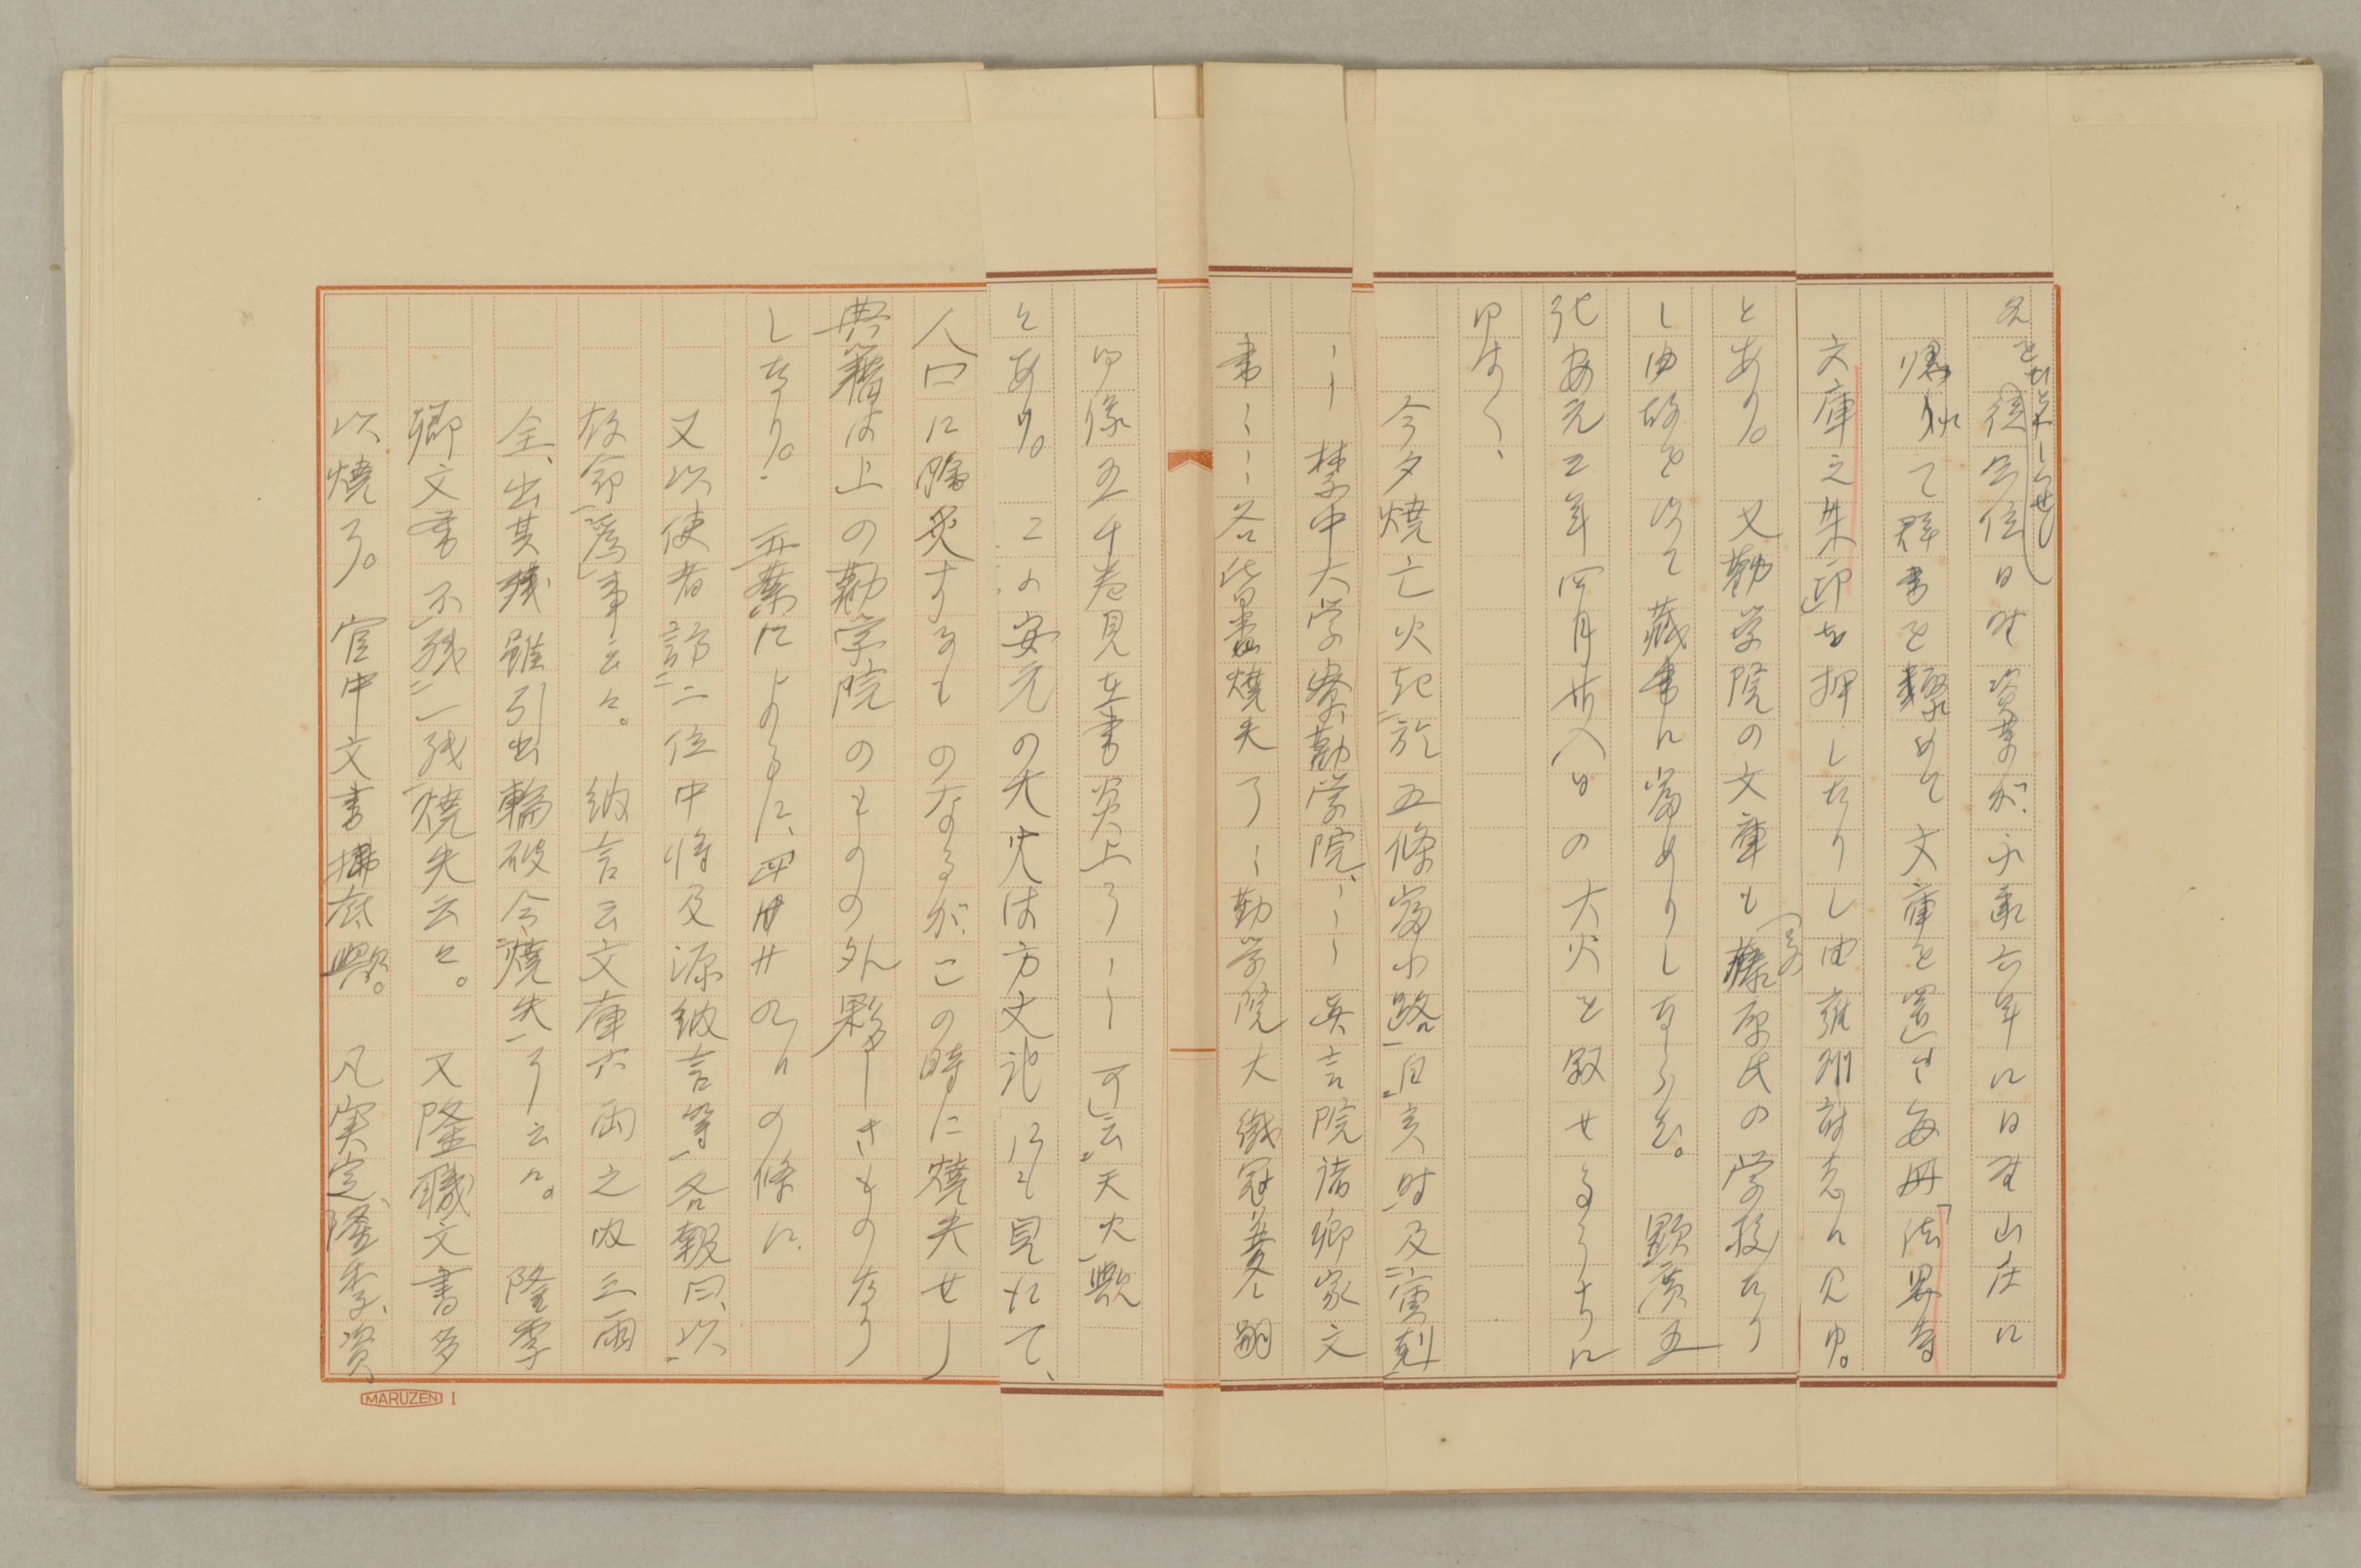 従三位日野資業が永承六年に日野山庄に
て群書を聚めて文庫を置き毎冊「法界寺
文庫之朱印」を押したりし由雍州府志に見ゆ。
とあり。又勧学院の文庫も藤原氏の学校たり
し由故を以て蔵書に富めりしならむ。顕広王
記安元三年四月廿八日の大火を叙せるうちに
曰はく、
今夕焼亡火起於五條富小路自亥時及寅剋
〻〻禁中大学寮勧学院、〻〻〻其言院諸卿家文
書〻〻〻各皆悉焼失了〻勧学院大織冠養嗣
御像五千巻見在書炎上了〻〻可云天火歟
とあり。この安元の大火は方丈記にも見えて、
人口に膾炙するものなるが、この時に焼失せし
典籍は上の勧学院のものの外夥しきものなり
しなり。玉葉によるに、四月廿九日の條に、
又以使者訪二位中将及源納言等、各報曰、以
故郷為事云々。納言云文庫六両之内三両
全、出其残雖引出輪破令焼失了云々。隆季
卿文書不残一紙焼失云々。又隆職文書多
以焼了。官中文書払底歟。凡実定、隆季、資
MARUZEN 1